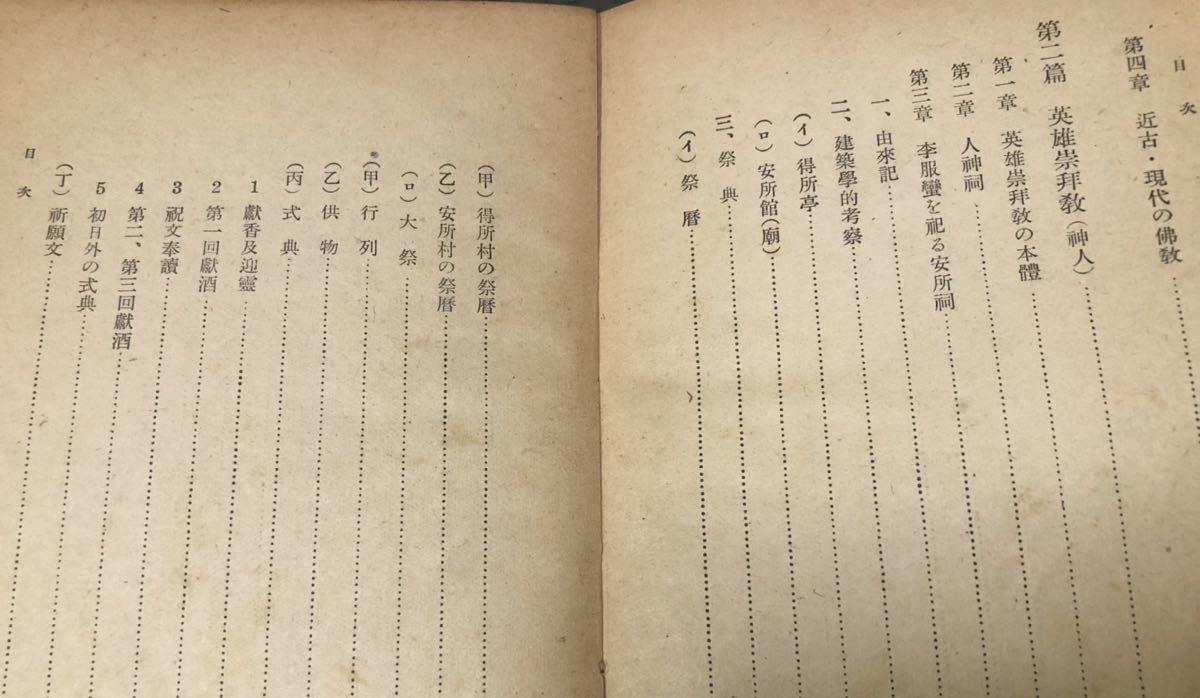 目次
第四章 近古・現代の佛敎
第二篇 英雄崇拜敎(神人)
第一章 英雄崇拜敎の本體
第二章 人神祠
第三章 李服蠻を祀る安所祠
一、由來記
二、建築學的考察
(イ)得所亭
(ロ)安所館(廟)
三、祭典
(イ)祭曆
(甲)得所村の祭曆
(乙)安所村の祭曆
(ロ)大祭
(甲)行列
(乙)供物
(丙)式典
1 獻香及迎靈
2 第一回獻酒
3 祝文奉讀
4 第二、第三回獻酒
5 初日外の式典
(丁)祈願文
目次